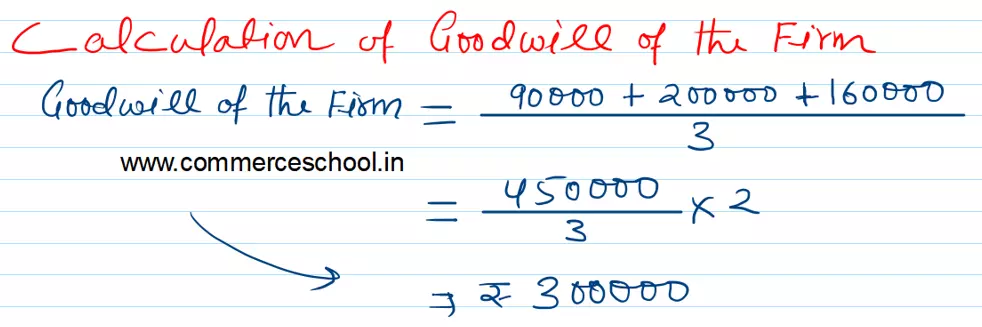 Calculation of Goodwill of the Firm
Goodwill of the Firm = 90000 + 200000 + 160000
3
www.commerceschool.in
= 450000 × 2
3
⇒ ₹ 300000